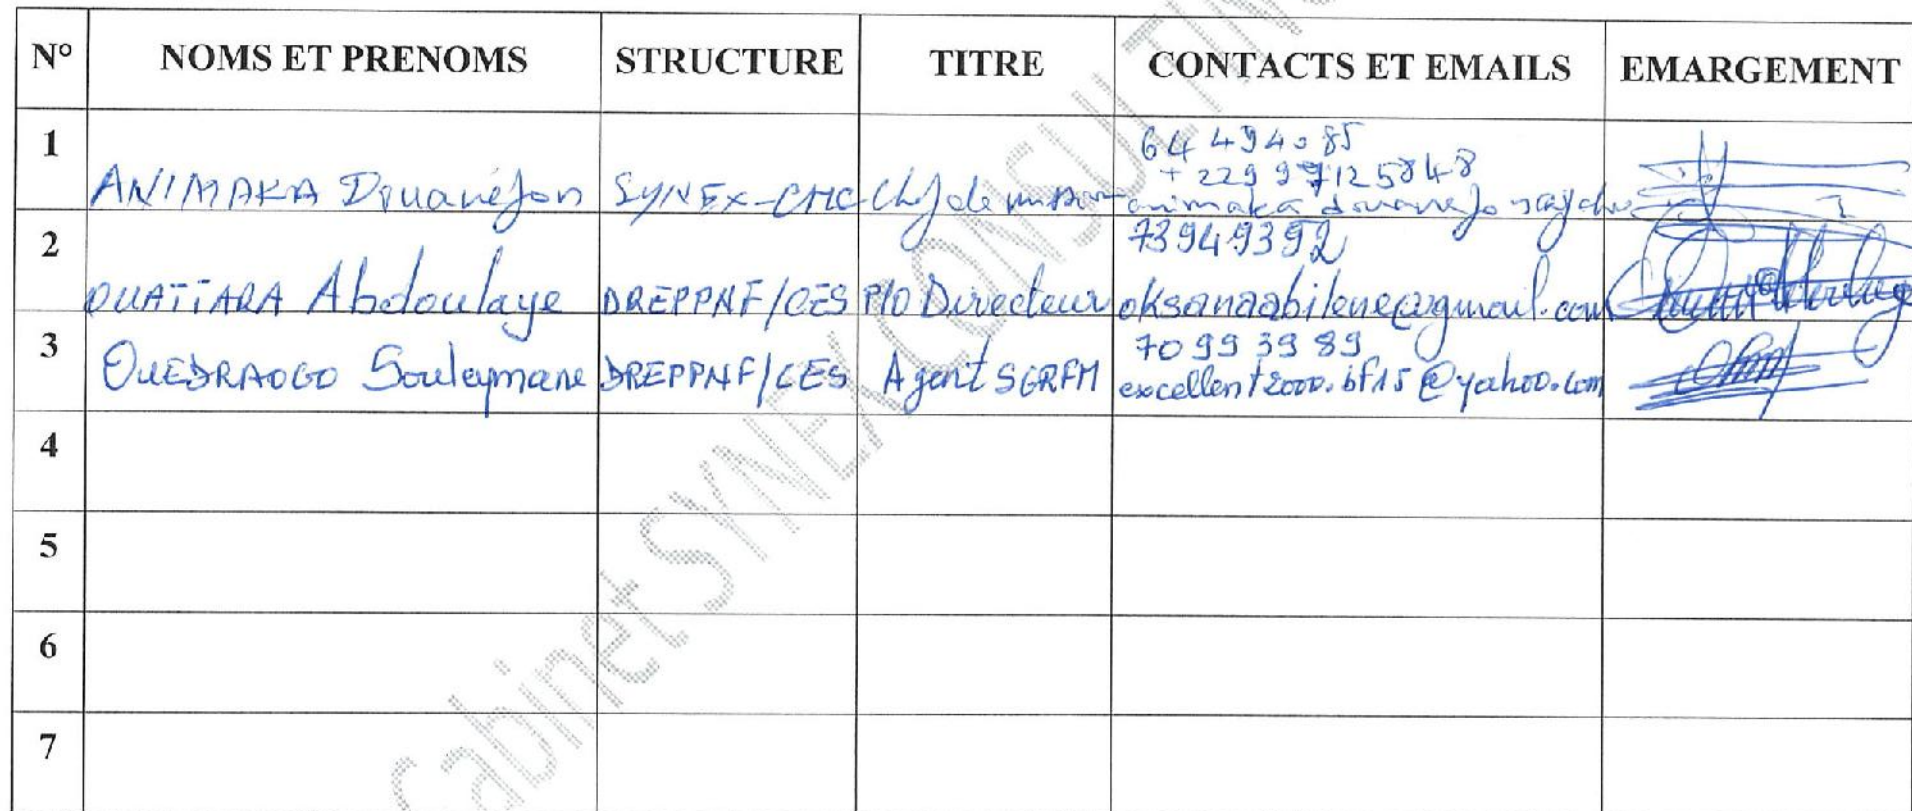 N° NOMS ET PRENOMS STRUCTURE TITRE CONTACTS ET EMAILS EMARGEMENT
1 ANIMAKA SYNEX-CMC
64 494085
+229 97125848
2 OUATTARA Abdoulaye DREPPNF/CES P/O Directeur
73949392
oksanaabilene@gmail.com
3 OUEDRAOGO Souleymane DREPPNF/CES Agent SGRFM
70 99 39 89
excellent2000.bf15@yahoo.com
4
5
6
7
Cabinet SYNEX CONSULTING